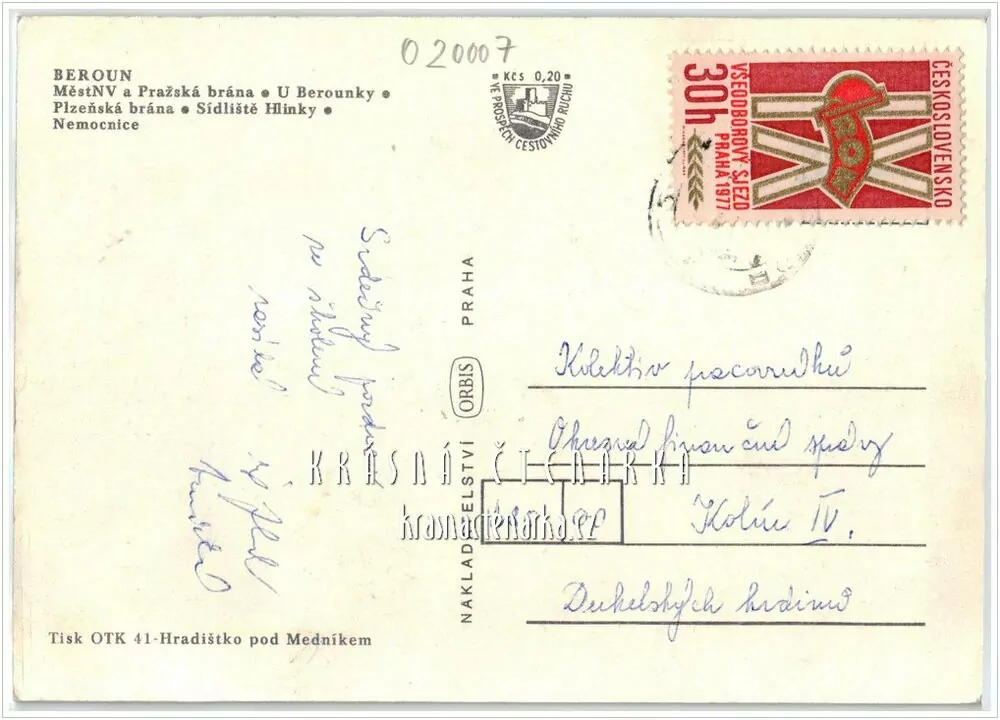 020007
BEROUN
MěstNV a Pražská brána • U Berounky •
Plzeňská brána • Sídliště Hlinky •
Nemocnice
KČS 0,20
VE PROSPĚCH CESTOVNÍHO RUCHU
ČESKOSLOVENSKO
IX
ROH
VŠEODBOROVÝ SJEZD
PRAHA 1977
30h
Srdečný pozdrav
ze školení
NAKLADATELSTVÍ ORBIS PRAHA
Kolektiv pracovníků
Okresní finanční správy
Kolín IV.
Dukelských hrdinů
KRÁSNÁ ČTENÁŘKA
krasnactenarka.cz
Tisk OTK 41-Hradištko pod Medníkem